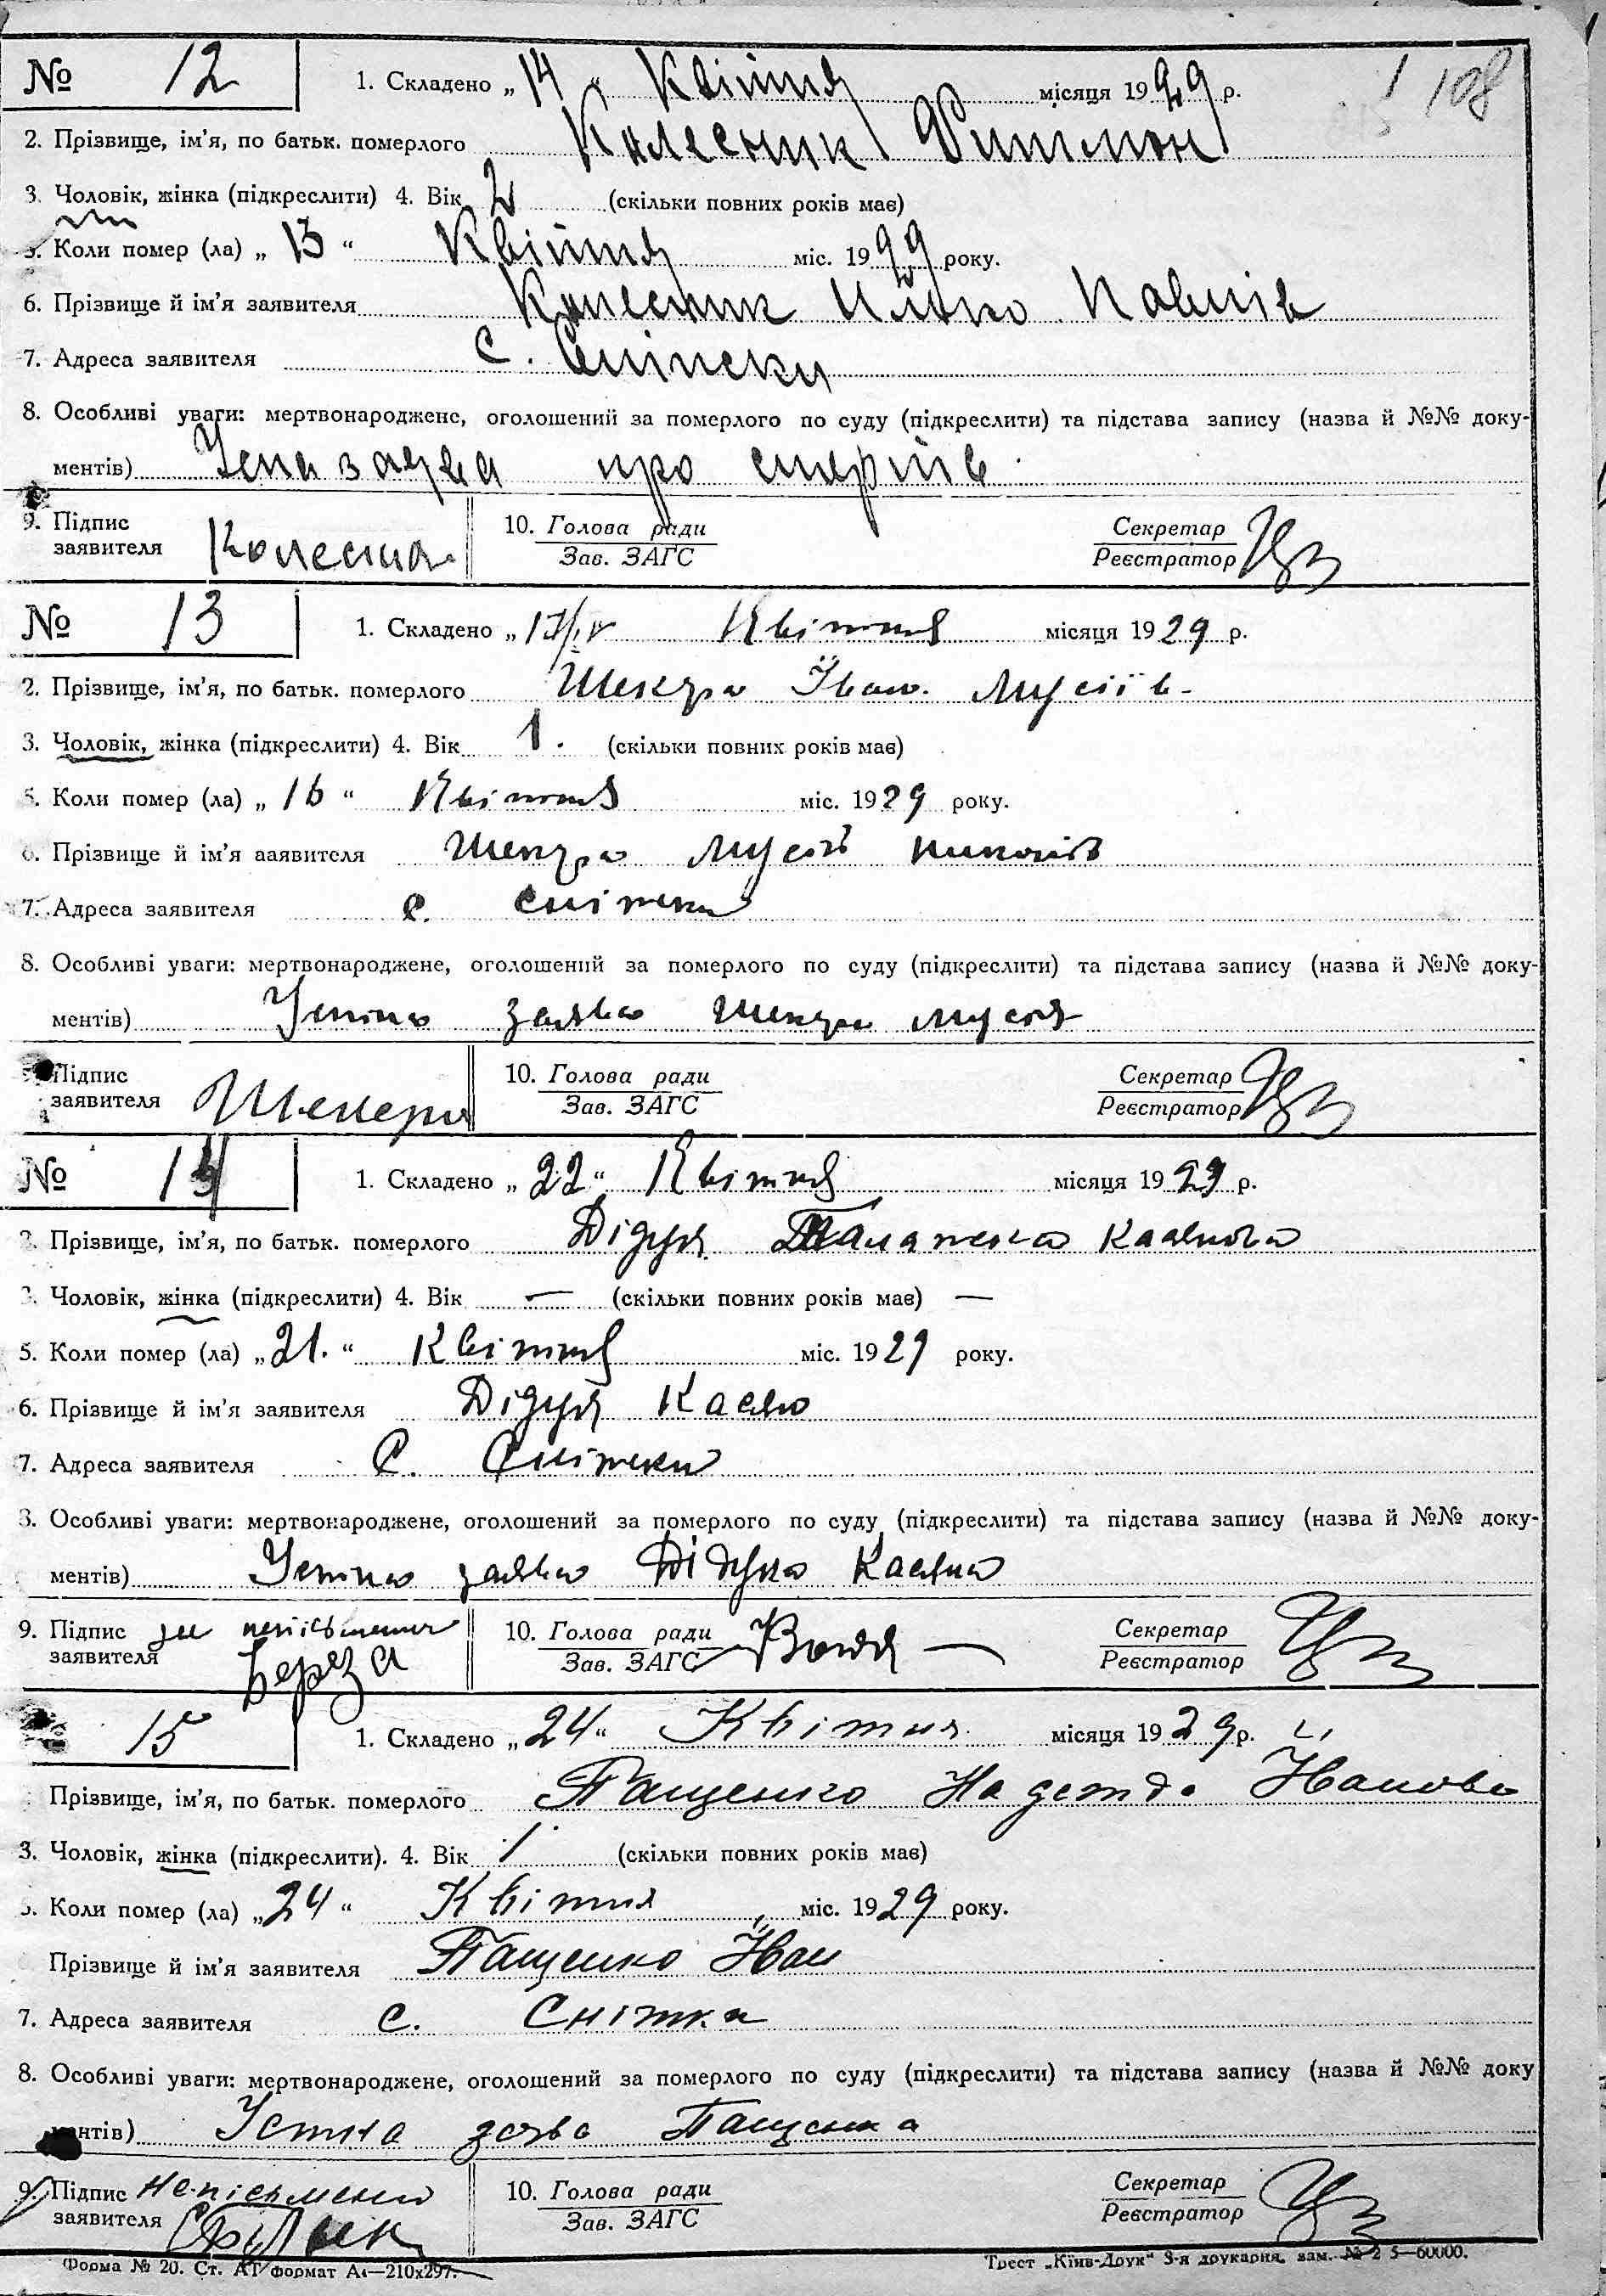 № 12 1. Складено „14“ Квітня місяця 1929 р. 108
2. Прізвище, ім’я, по батьк. померлого Колесник
3. Чоловік, жінка (підкреслити) 4. Вік 2 (скільки повних років має)
5. Коли помер (ла) „13“ Квітня міс. 1929 року.
6. Прізвище й ім’я заявителя Колесник
7. Адреса заявителя с. Снітки
8. Особливі уваги: мертвонароджене, оголошений за померлого по суду (підкреслити) та підстава запису (назва й №№ доку-
ментів) про смерть
9. Підпис 10. Голова ради Секретар
заявителя Колесник Зав. ЗАГС Реєстратор
№ 13 1. Складено „17/IV Квітня місяця 1929 р.
2. Прізвище, ім’я, по батьк. померлого Шекера Іван Мусіїв-
3. Чоловік, жінка (підкреслити) 4. Вік 1. (скільки повних років має)
5. Коли помер (ла) „16“ Квітня міс. 1929 року.
6. Прізвище й ім’я ааявителя Шекера Мусій
7. Адреса заявителя с. Снітки
8. Особливі уваги: мертвонароджене, оголошений за померлого по суду (підкреслити) та підстава запису (назва й №№ доку-
ментів) Устна заява Шекери Мусія
Підпис 10. Голова ради Секретар
заявителя Шекера Зав. ЗАГС Реєстратор
№ 14 1. Складено „22“ Квітня місяця 1929 р.
2. Прізвище, ім’я, по батьк. померлого Дідуля Палажка Касянова
3. Чоловік, жінка (підкреслити) 4. Вік — (скільки повних років має) —
5. Коли помер (ла) „21.“ Квітня міс. 1929 року.
6. Прізвище й ім’я заявителя Дідуля Касян
7. Адреса заявителя С. Снітки
8. Особливі уваги: мертвонароджене, оголошений за померлого по суду (підкреслити) та підстава запису (назва й №№ доку-
ментів) Устна заява Касяна
9. Підпис за 10. Голова ради Секретар
заявителя Береза Зав. ЗАГС Реєстратор
15 1. Складено „24“ Квітня місяця 1929 р.
Прізвище, ім’я, по батьк. померлого Пащенко Надежда Іванова
3. Чоловік, жінка (підкреслити). 4. Вік 1 (скільки повних років має)
5. Коли помер (ла) „24“ Квітня міс. 1929 року.
Прізвище й ім’я заявителя Пащенко Іван
7. Адреса заявителя с. Снітки
8. Особливі уваги: мертвонароджене, оголошений за померлого по суду (підкреслити) та підстава запису (назва й №№ доку
ментів) Устна заява Пащенка
9. Підпис неписьмений 10. Голова ради Секретар
заявителя Зав. ЗАГС Реєстратор
Форма № 20. Ст. АГ формат А4—210х297. Трест „Київ-Друк“ 3-я друкарня, зам. № 2 5—60000.